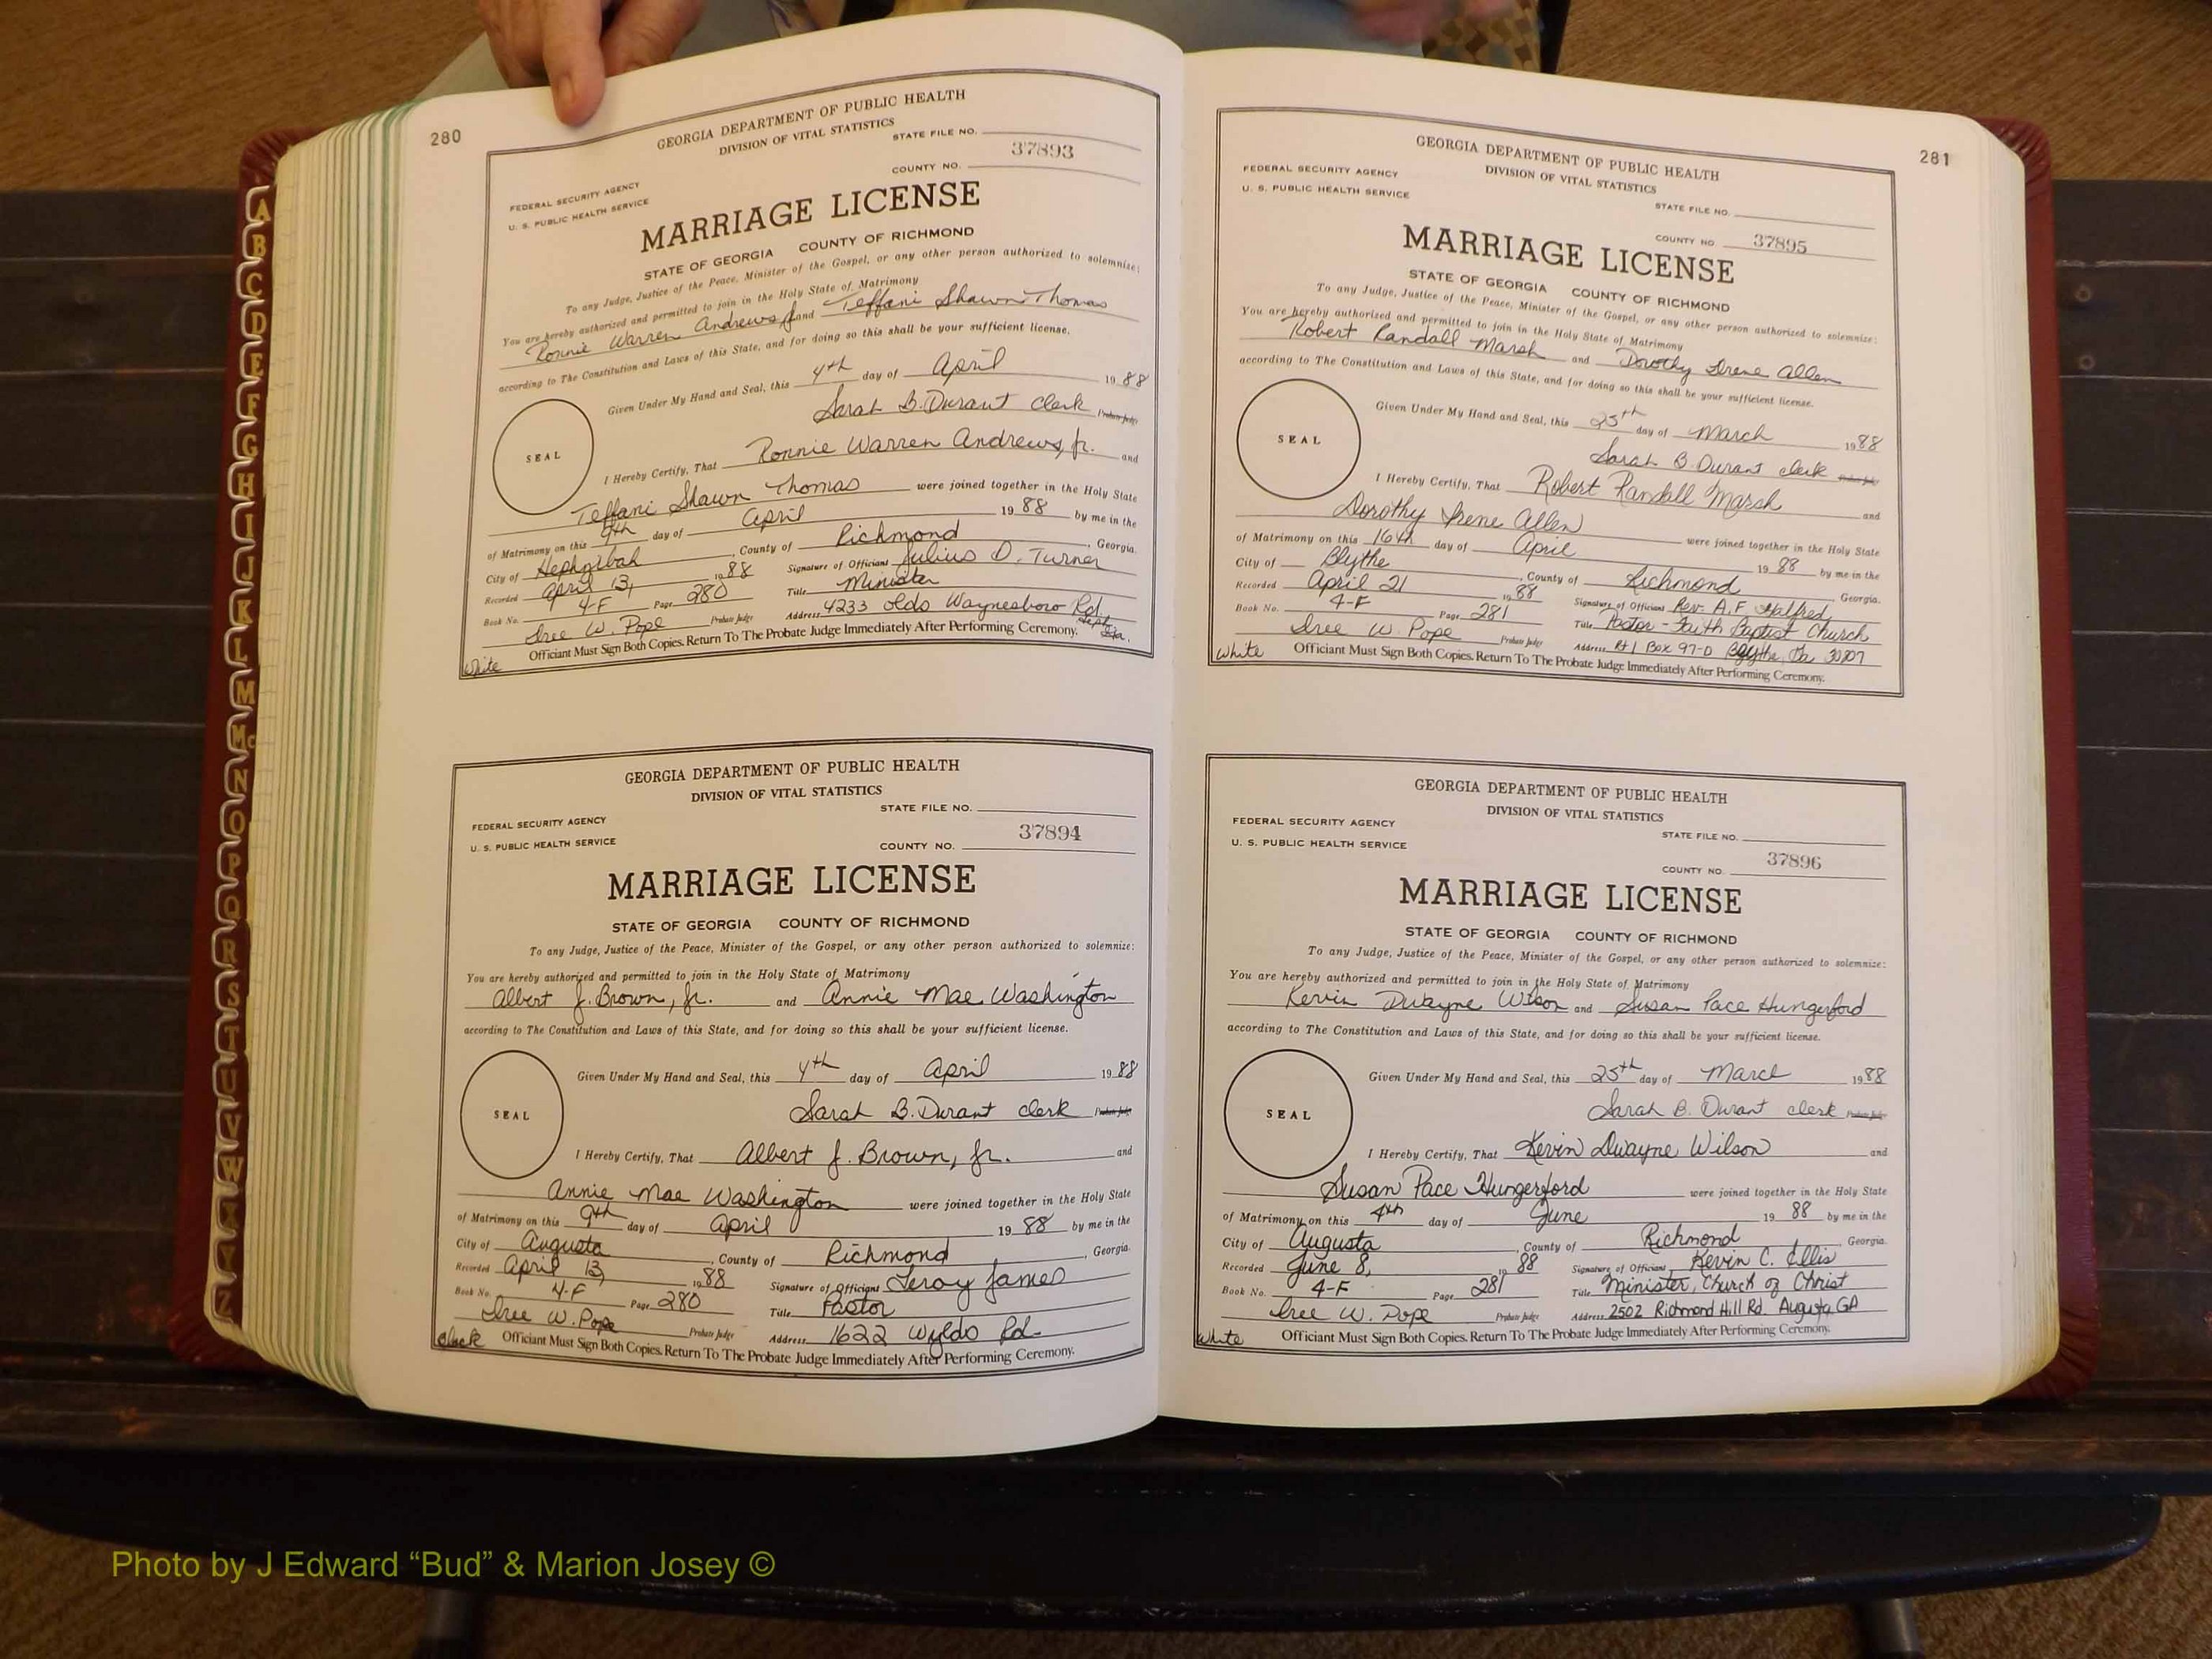 280
GEORGIA DEPARTMENT OF PUBLIC HEALTH
DIVISION OF VITAL STATISTICS
STATE FILE NO.
37893
COUNTY NO.
FEDERAL SECURITY AGENCY
U. S. PUBLIC HEALTH SERVICE
MARRIAGE LICENSE
STATE OF GEORGIA COUNTY OF RICHMOND
To any Judge, Justice of the Peace, Minister of the Gospel, or any other person authorized to solemnize:
You are hereby authorized and permitted to join in the Holy State of Matrimony
Ronnie Warren Andrews Jr and Teffani Shawn Thomas
according to The Constitution and Laws of this State, and for doing so this shall be your sufficient license.
Given Under My Hand and Seal, this 4th day of April 1988
Sarah B. Durant clerk Probate Judge
SEAL
I Hereby Certify, That Ronnie Warren Andrews, Jr. and
Teffani Shawn Thomas were joined together in the Holy State
of Matrimony on this 9th day of April 1988 by me in the
City of Hephzibah, County of Richmond, Georgia.
Recorded April 13, 1988 Signature of Officiant Julius D. Turner
Book No. 4-F Page 280 Title Minister
Iree W. Pope Probate Judge Address 4233 Olds Waynesboro Rd. Heph, Ga.
White Officiant Must Sign Both Copies. Return To The Probate Judge Immediately After Performing Ceremony.
GEORGIA DEPARTMENT OF PUBLIC HEALTH
DIVISION OF VITAL STATISTICS
STATE FILE NO.
FEDERAL SECURITY AGENCY
37894
U. S. PUBLIC HEALTH SERVICE
COUNTY NO.
MARRIAGE LICENSE
STATE OF GEORGIA COUNTY OF RICHMOND
To any Judge, Justice of the Peace, Minister of the Gospel, or any other person authorized to solemnize:
You are hereby authorized and permitted to join in the Holy State of Matrimony
Albert J. Brown, Jr. and Annie Mae Washington
according to The Constitution and Laws of this State, and for doing so this shall be your sufficient license.
Given Under My Hand and Seal, this 4th day of April 1988
Sarah B. Durant clerk Probate Judge
SEAL
I Hereby Certify, That Albert J. Brown, Jr. and
Annie Mae Washington were joined together in the Holy State
of Matrimony on this 9th day of April 1988 by me in the
City of Augusta, County of Richmond, Georgia.
Recorded April 13, 1988 Signature of Officiant Leroy James
Book No. 4-F Page 280 Title Pastor
Iree W. Pope Probate Judge Address 1622 Wylds Rd.
Black Officiant Must Sign Both Copies. Return To The Probate Judge Immediately After Performing Ceremony.
281
GEORGIA DEPARTMENT OF PUBLIC HEALTH
DIVISION OF VITAL STATISTICS
FEDERAL SECURITY AGENCY
U. S. PUBLIC HEALTH SERVICE
STATE FILE NO.
COUNTY NO. 37895
MARRIAGE LICENSE
STATE OF GEORGIA COUNTY OF RICHMOND
To any Judge, Justice of the Peace, Minister of the Gospel, or any other person authorized to solemnize:
You are hereby authorized and permitted to join in the Holy State of Matrimony
Robert Randall Marsh and Dorothy Irene Allen
according to The Constitution and Laws of this State, and for doing so this shall be your sufficient license.
Given Under My Hand and Seal, this 25th day of March 1988
Sarah B. Durant clerk Probate Judge
SEAL
I Hereby Certify, That Robert Randall Marsh and
Dorothy Irene Allen were joined together in the Holy State
of Matrimony on this 16th day of April 1988 by me in the
City of Blythe, County of Richmond, Georgia.
Recorded April 21 1988 Signature of Officiant Rev. A.F.
Book No. 4-F Page 281 Title Pastor - Faith Baptist Church
Iree W. Pope Probate Judge Address Rt 1 Box 97-D Blythe, Ga
White Officiant Must Sign Both Copies. Return To The Probate Judge Immediately After Performing Ceremony.
GEORGIA DEPARTMENT OF PUBLIC HEALTH
DIVISION OF VITAL STATISTICS
FEDERAL SECURITY AGENCY
STATE FILE NO.
U. S. PUBLIC HEALTH SERVICE
COUNTY NO. 37896
MARRIAGE LICENSE
STATE OF GEORGIA COUNTY OF RICHMOND
To any Judge, Justice of the Peace, Minister of the Gospel, or any other person authorized to solemnize:
You are hereby authorized and permitted to join in the Holy State of Matrimony
Kevin Dwayne Wilson and Susan Pace Hungerford
according to The Constitution and Laws of this State, and for doing so this shall be your sufficient license.
Given Under My Hand and Seal, this 25th day of March 1988
Sarah B. Durant clerk Probate Judge
SEAL
I Hereby Certify, That Kevin Dwayne Wilson and
Susan Pace Hungerford were joined together in the Holy State
of Matrimony on this 4th day of June 1988 by me in the
City of Augusta, County of Richmond, Georgia.
Recorded June 8, 1988 Signature of Officiant Kevin C. Ellis
Book No. 4-F Page 281 Title Minister, Church of Christ
Iree W. Pope Probate Judge Address 2502 Richmond Hill Rd. Augusta, GA
White Officiant Must Sign Both Copies. Return To The Probate Judge Immediately After Performing Ceremony.
A
B
C
D
E
F
G
H
I
J
K
L
M
Mc
N
O
P
Q
R
S
T
U
V
W
X
Y
Z
Photo by J Edward “Bud” & Marion Josey ©